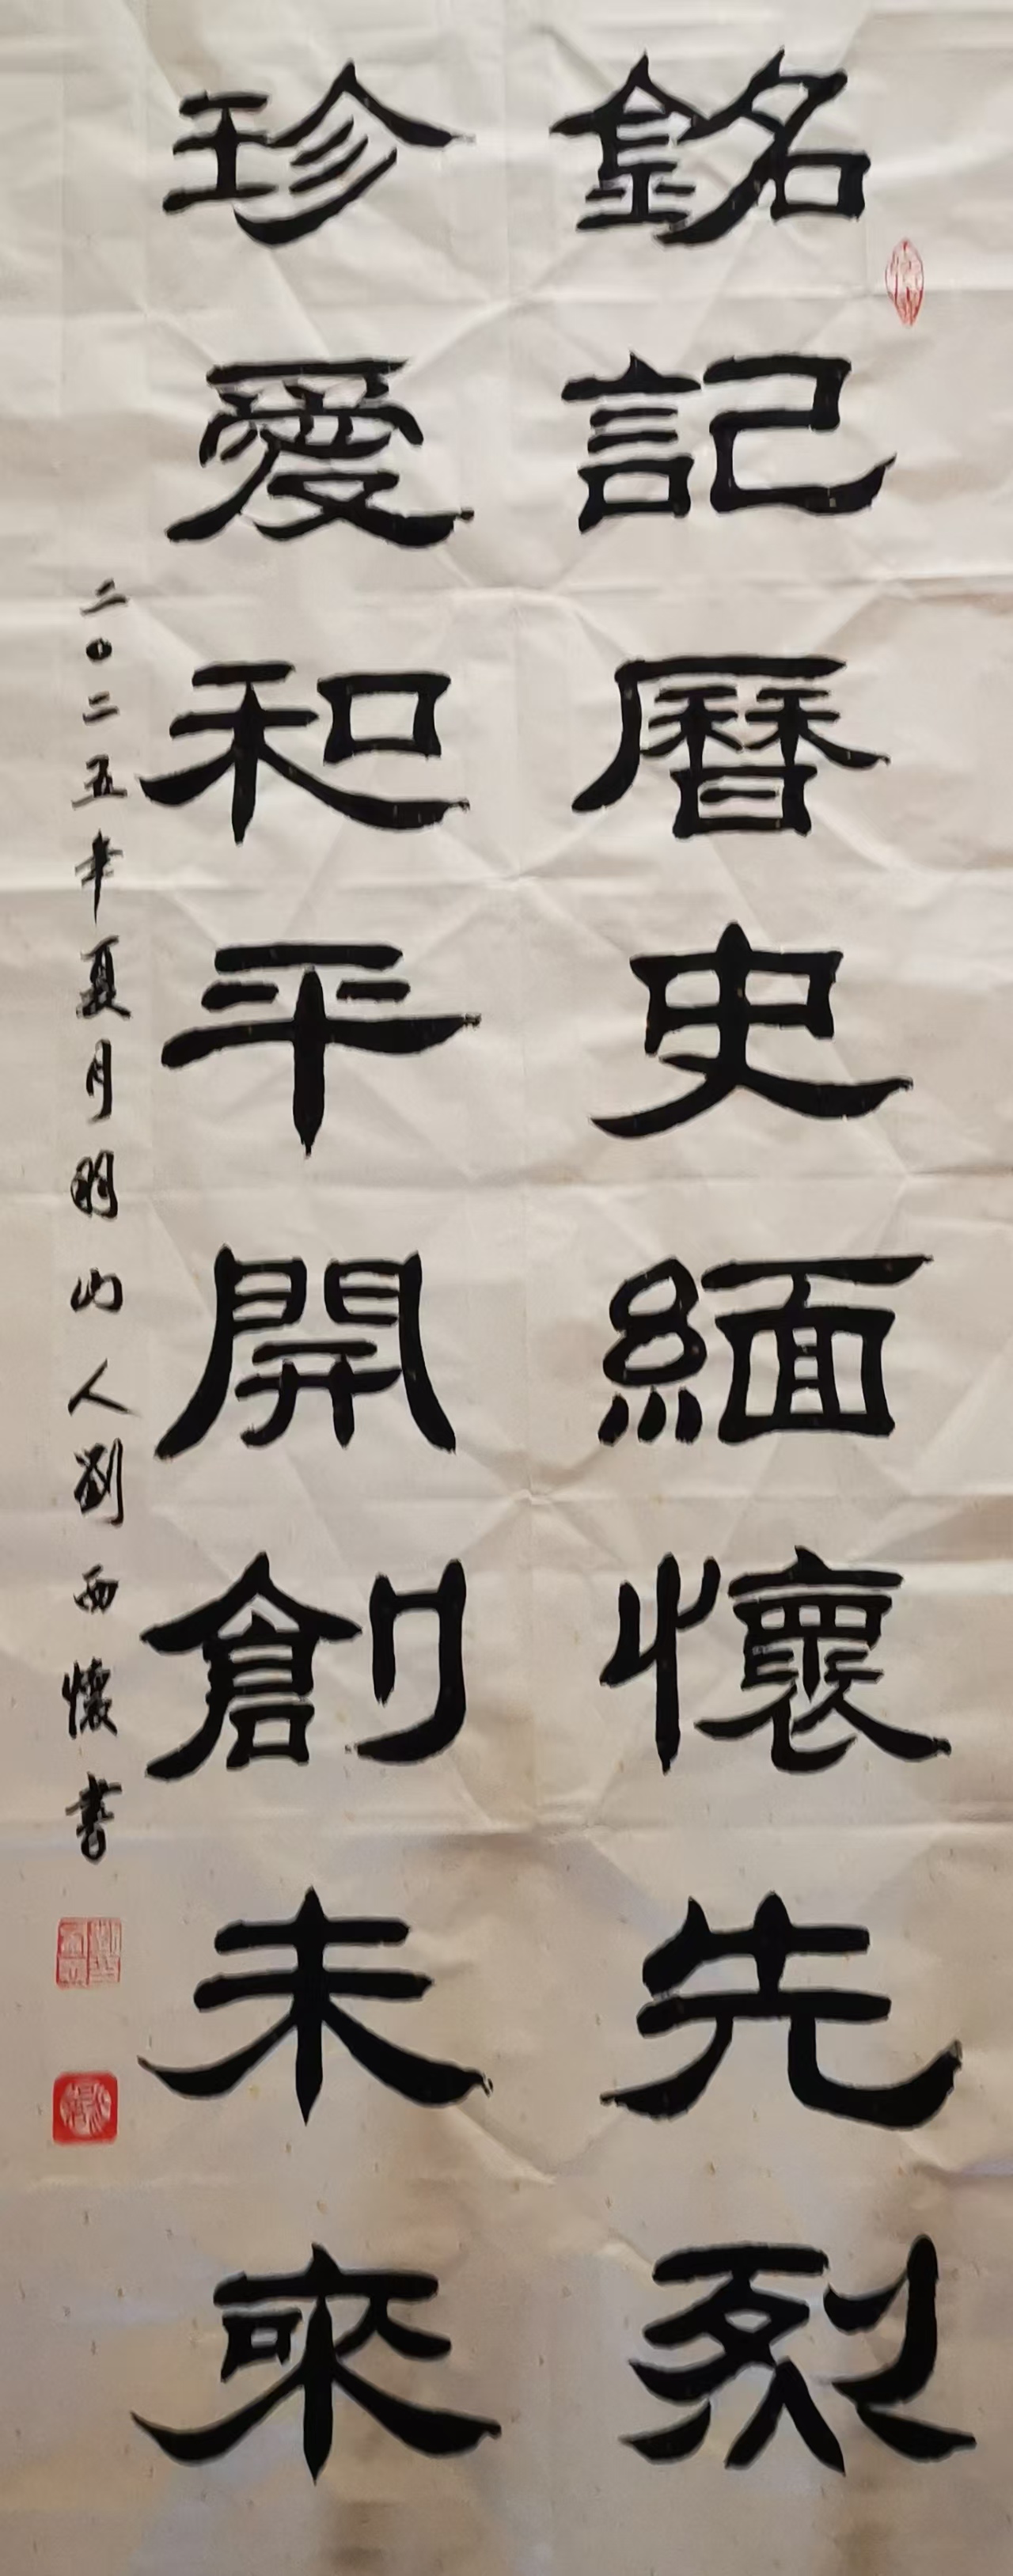 銘記曆史緬懷先烈
珍愛和平開創未來
二〇二五年夏月明山人劉西懷書